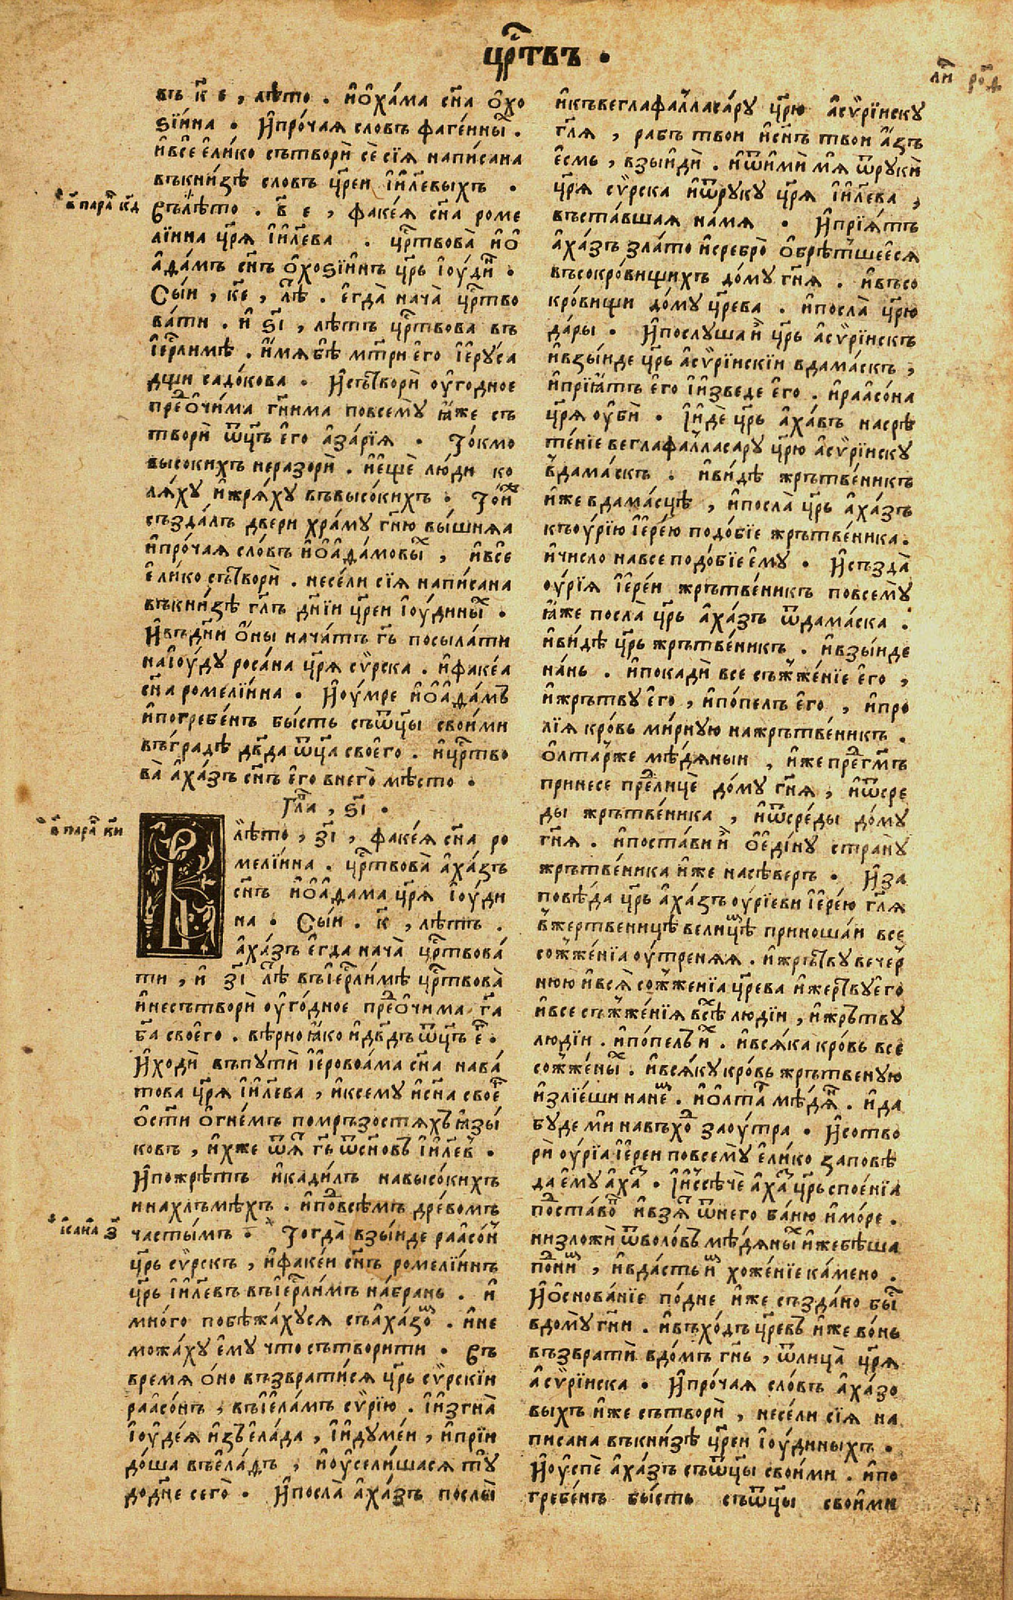 цр҃твъ .
въ к҃ е , лѣто . и҆ѻ҆ха́ма сн҃а ѻ҆хо
ѕїи́на . И҆про́чаѧ словъ фаге́нны .
и҆все є҆ли́ко сътворѝ сѐ сїѧ написана
въкни́зѣ словъ цр҃еи і҆и҃левыхъ .
в҃ пара к҃д
Въ лѣто . в҃ е , факе́ѧ сн҃а роме
лїина цр҃ѧ і҆и҃лева . цр҃твова̀ и҆ѻ҆
а҆да́мъ сн҃ъ ѻ҆хоѕїинъ цр҃ь і҆ѹди .
Сыи , к҃е , лѣ . є҆гда̀ нача̀ цр҃тво
ва́ти . и҆ ѕ҃і , лѣтъ цр҃твова въ
і҆ер҃лимѣ . и҆́мѧбѣ мт҃ри є҆го і҆є҆рѹса
дщи садо́кова . И҆сътворѝ ѹ҆го́дное
пре ѻ҆чи́ма гн҃има повсемѹ ꙗ҆́же съ
творѝ ѿц҃ъ є҆го а҆за́рїѧ . То́кмо
высокихъ неразорѝ . и҆є҆щѐ лю́ди ко
лѧ́хѹ и҆жрѧ́хѹ въвысо́кихъ . То́и
създа́лъ двери храмѹ гн҃ю вы́шнѧа
и҆про́чаѧ сло́въ и҆ѻ҆а҆да́мовы , и҆все
є҆ли́ко сътворѝ . несе́ли сїѧ написана
въкни́зѣ гл҃ъ дн҃їи цр҃еи і҆ѹ́дины .
И҆въдн҃и ѻ҆́ны нача́тъ гь҃ посыла́ти
наі҆ѹдѹ роса́на цр҃ѧ сѵ҆рска . и҆факе́а
сн҃а ромелїина . И҆ѹ҆мре и҆ѻ҆а҆да́мъ
и҆погребе́нъ бы́сть съѿц҃ы свои́ми
въгра́дѣ дв҃да ѿц҃а своего . и҆цр҃тво
ва̀ а҆ха́зъ сн҃ъ є҆го внего̀ мѣсто .
Гла , ѕ҃і .
в҃ пара к҃и
Влѣто , з҃і , факе́ѧ сн҃а ро
мелїина . цр҃твова̀ а҆ха́зъ
сн҃ъ и҆ѻ҆а҆дама цр҃ѧ і҆ѹди
на . Сы́и . к҃ , лѣтъ .
а҆ха́зъ є҆гда нача̀ цр҃твова́
ти , и҆ з҃і лѣ въі҆ер҃лимѣ цр҃твова̀
и҆несътворѝ ѹ҆го́дное пре ѻ҆чима г҃а
б҃а своего . вѣрно ꙗ҆ко и҆дв҃дъ ѿц҃ъ є҆го .
И҆ходѝ въпутѝ і҆еровоа́ма сн҃а нава́
това цр҃ѧ і҆и҃лева , и҆ксемѹ и҆сн҃а свое
ѻ҆сти ѻ҆гнемъ помръзостѧхъ ꙗ҆зы́
ковъ , и҆хже ѿѧ гь҃ ѿсновъ і҆и҃левъ .
И҆пожрѣтъ и҆кадилъ навысо́кихъ
и҆нахлъмѣхъ . и҆по всѣмъ дре́вомъ
частымъ . Тогда̀ взы́иде раасо́н
и҆саиа з҃
цр҃ь сѵ҆рскъ , и҆факе́и сн҃ъ ромелїинъ
цр҃ь і҆и҃левъ въі҆ер҃лимъ на́брань . и҆
мно́го побѣжа́хѹсѧ съа҆ха́зо . и҆не
можа́хѹ є҆мѹ что сътворити . Въ
времѧ ѻ҆́но възврати́сѧ цр҃ь сѵ҆рскїи
раасо́нъ , въі҆є҆ла́мъ сѵ҆рїю . и҆изгна̀
і҆ѹде́ѧ и҆зъє҆ла́да , и҆идѹме́и , и҆прїи
до́ша въє҆ла́дъ , и҆ѹ҆сели́шасѧ тѹ
додн҃е сего̀ . И҆посла̀ а҆ха́зъ послы̀
и҆къвеглафаллаа́рѹ цр҃ю а҆сѵ҆рїискѹ
гл҃ѧ , рабъ твои и҆сн҃ъ твои а҆́зъ
є҆смь , взы́иди . и҆ѿимѝ мѧ ѿрукѝ
цр҃ѧ сѵ҆рска и҆ѿрукѹ цр҃ѧ і҆и҃лева ,
въста́вшаѧ на́мѧ . И҆прїѧ́тъ
а҆ха́зъ злато и҆сребрѐ ѻ҆брѣтшеесѧ
въсокро́вищихъ до́мѹ гн҃ѧ . и҆въсо
кро́вищи до́мѹ цр҃ева . и҆посла̀ цр҃ю
да́ры . И҆послѹша и҆ цр҃ь а҆сѵ҆рїискъ
и҆взы́иде цр҃ь а҆сѵ҆рїискїи вдама́скъ ,
и҆прїѧ́тъ є҆го и҆изведе є҆го . и҆раасо́на
цр҃ѧ ѹ҆бѝ . И҆и́де цр҃ь а҆ха́въ насрѣ
те́нїе веглафалласарѹ цр҃ю а҆сѵ҆рїискѹ
вдама́скъ . и҆ви́дѣ жрътве́никъ
и҆же вдама́сцѣ , и҆посла̀ цр҃ь а҆ха́зъ
къѹрїю і҆ере́ю подо́бїе жрътве́ника .
и҆число навсе подо́бїе є҆мѹ . И҆създа̀
ѹрїѧ і҆ере́и жрътве́никъ повсемѹ̀
ꙗ҆же посла̀ цр҃ь а҆ха́зъ ѿдама́ска .
и҆ви́дѣ цр҃ь жрътве́никъ . и҆взы́иде
на́нь . и҆покадѝ все съжже́нїе є҆го ,
и҆жрътвѹ є҆го , и҆по́пелъ є҆го , и҆про
лїѧ кро́вь ми́рнѹю нажрътве́никъ .
ѻ҆лта́рже мѣ́дѧныи , и҆же прегмъ
принесе прелицѐ до́мѹ гн҃ѧ , и҆ѿсре
ды жрътве́ника , и҆ѿсре́ды до́мѹ
гн҃ѧ . и҆поста́ви и҆ ѻ҆е҆ди́нѹ странѹ
жрътве́ника и҆же насѣверъ . И҆за
повѣда цр҃ь а҆ха́зъ ѹрїеви і҆ере́ю гл҃ѧ
вжертвеницѣ велицѣ приноша́и все
сожже́нїа ѹ҆тренѧѧ . и҆жрътвѹ вечер
нюю и҆всѧ̀ сожже́нїа цр҃ева и҆жертвѹего
и҆все съжже́нїѧ всѣ людїи , и҆жрътвѹ
люді́и . и҆по́пелъ и҆ . и҆всѧка кро́вь все
сожжены . и҆всѧ́кѹ кро́вь жрътвенѹю
и҆злїе́ши нане . и҆ѻ҆лта мѣдѧ . и҆да
бѹде ми навъхо заѹ́тра . И҆сотво
рѝ ѹрїѧ і҆ере́и повсемѹ є҆ли́ко заповѣ
да є҆мѹ а҆ха . И҆и́ссѣче а҆ха цр҃ь спое́нїа
поставо и҆взѧ ѿнего ба́ню и҆мо́ре .
низложи ѿволо́въ мѣ́дѧны и҆жебѣша
пони , и҆вда́сть и҆ хожéнїе ка́мено .
И҆ѻ҆снова́нїе по́дне и҆же създа́но бы
вдомѹ гн҃и . и҆въхо́дъ цр҃евъ и҆же во́нь
възвратѝ вдо́мъ гн҃ь , ѿлица̀ цр҃ѧ
а҆сѵ҆рїиска . И҆про́чаѧ сло́въ а҆ха́зо
выхъ и҆же сътворѝ , несе́ли сїѧ на
писана въкни́зѣ цр҃еи і҆ѹ́диныхъ .
И҆ѹ҆спѐ а҆ха́зъ съѿц҃ы свои́ми . и҆по
гребе́нъ бы́сть съѿц҃ы свои́ми